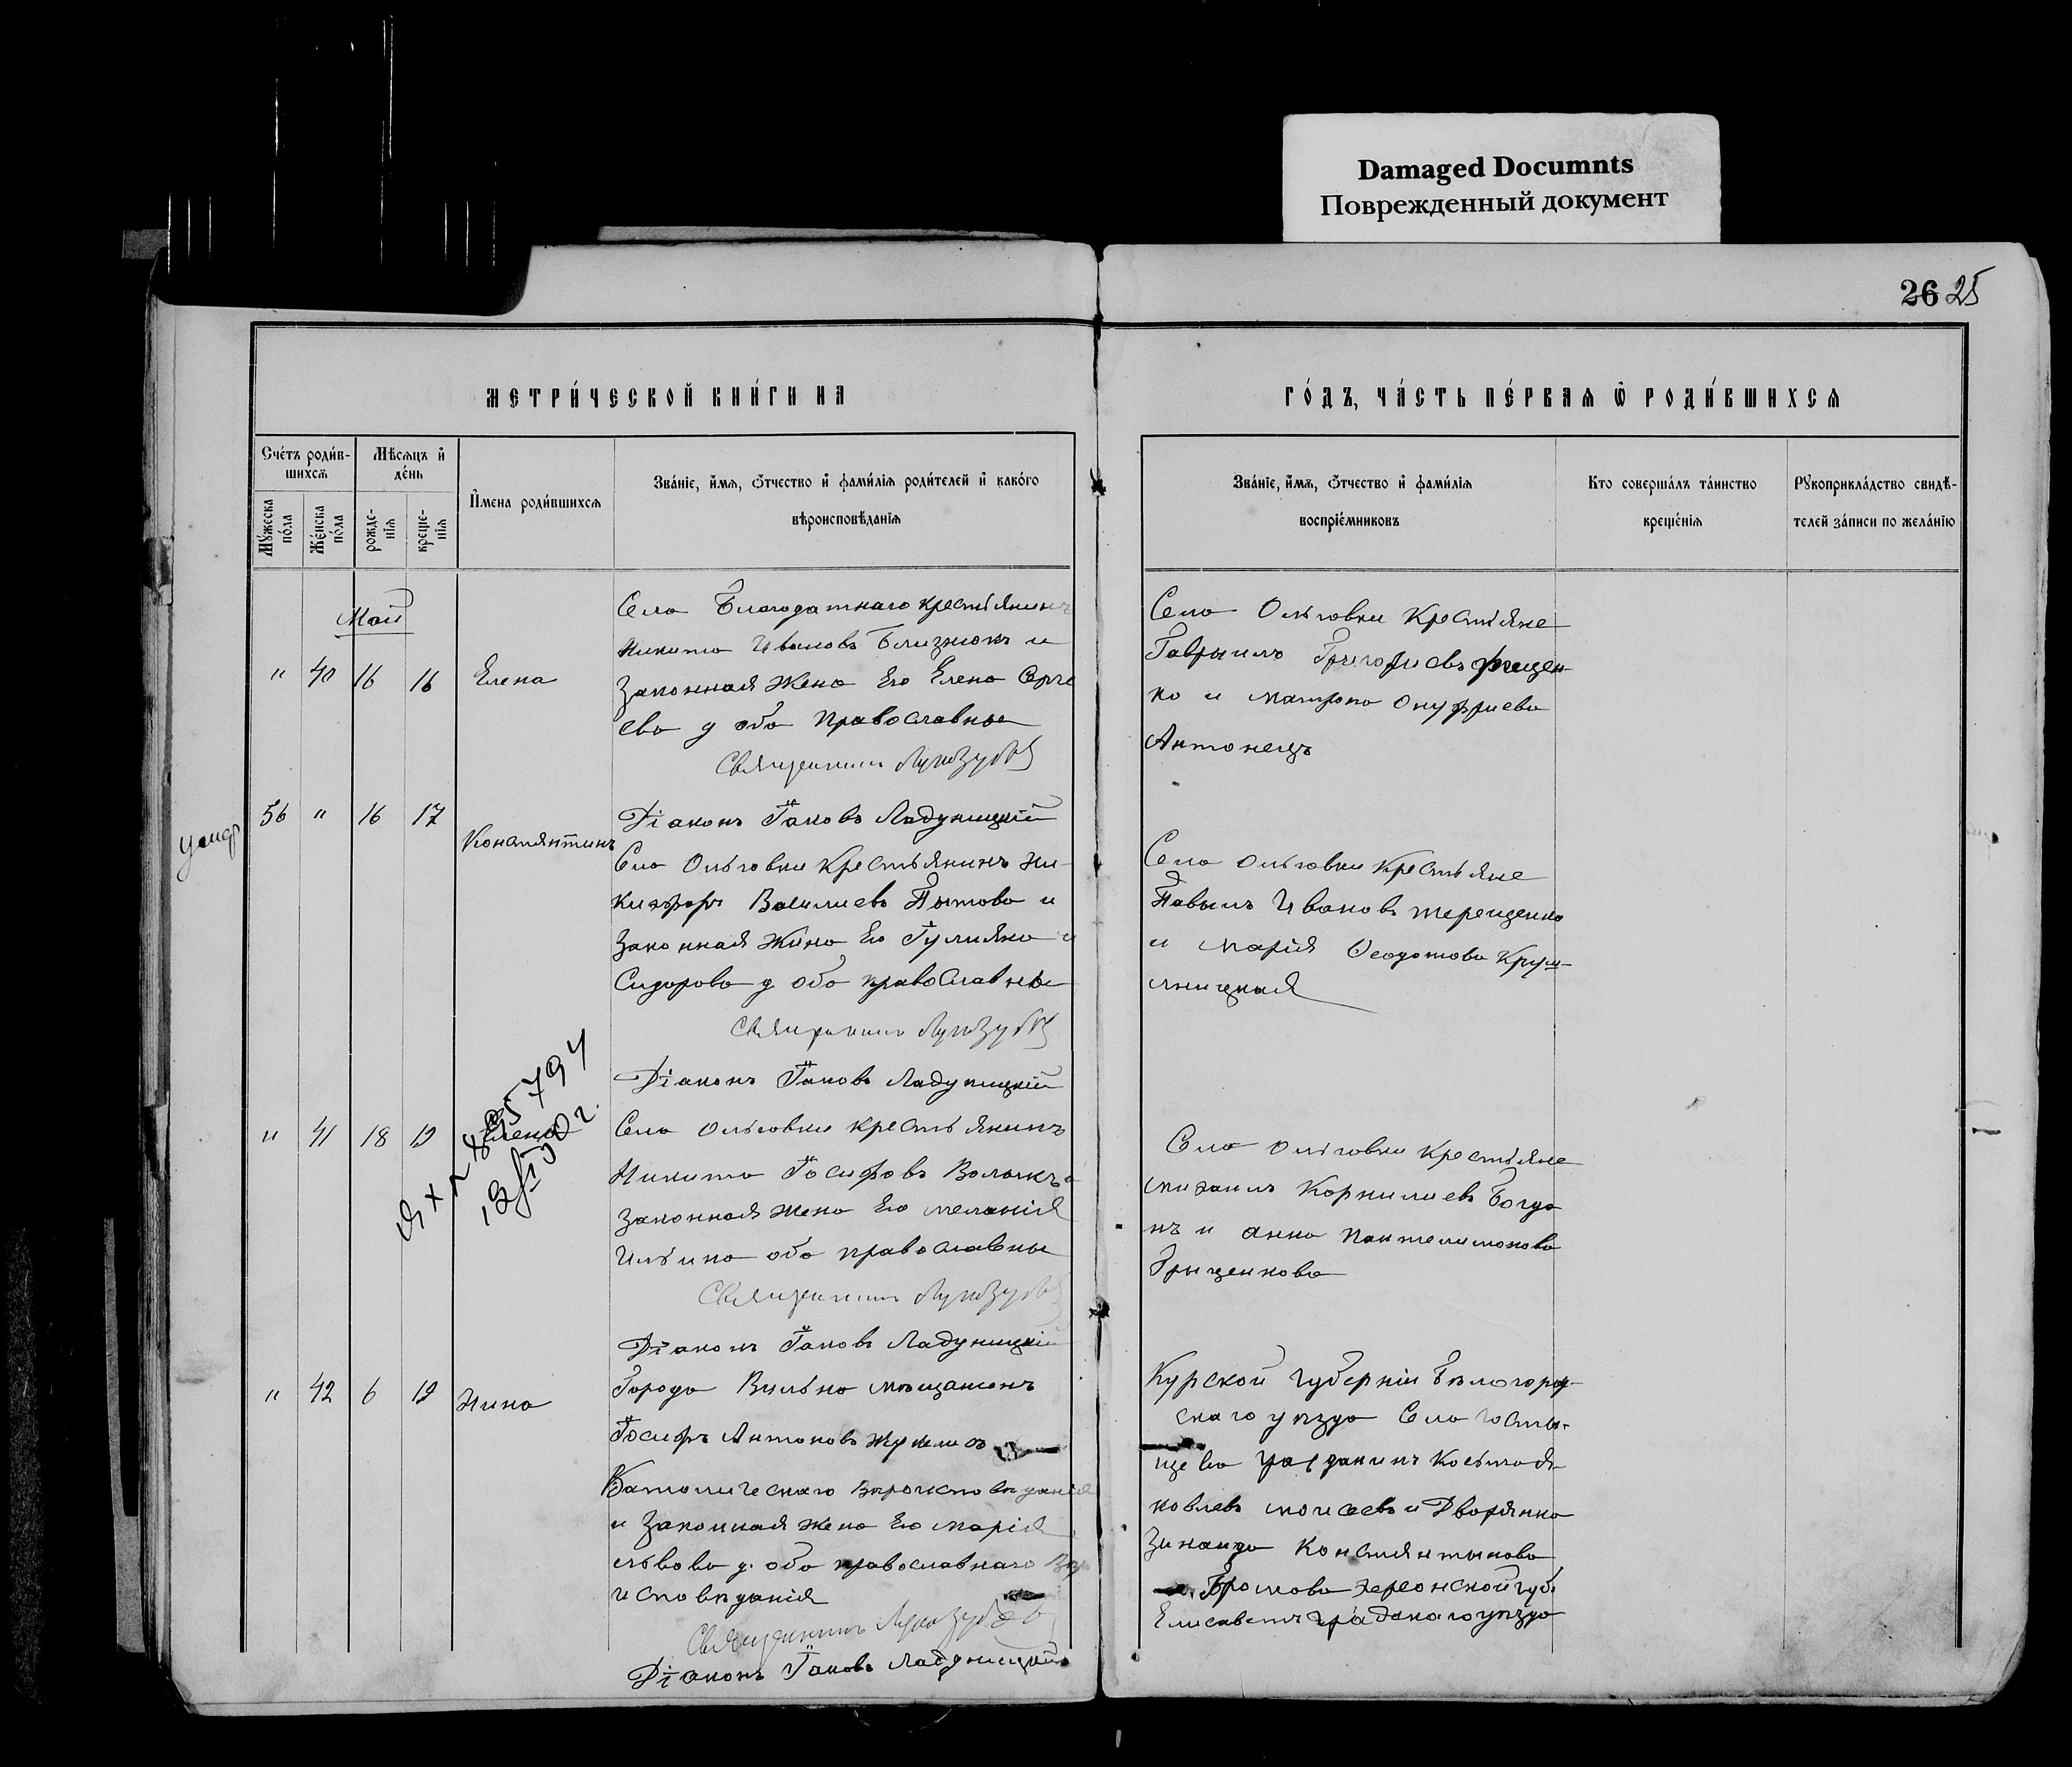 Damaged Documnts
Поврежденный документ
26 25
МЕТРИ́ЧЕСКОЙ КНИ́ГИ НА
ГО́ДЪ, ЧА́СТЬ ПЕ́РВАѦ Ѡ҆ РОДИ́ВШИХСѦ
Сче́тъ роди́в-
шихсѧ
Мѣ́сѧцъ и҆
де́нь
Мꙋ́жеска
по́ла
Же́нска
по́ла
рожде-
нїѧ
креще-
нїѧ
И҆мена роди́вшихсѧ
Зва́нїе, и҆́мѧ, ѻ҆́тчество и҆ фами́лїѧ роди́телей и҆ како́го
вѣроисповѣ́данїѧ
Зва́нїе, и҆́мѧ, ѻ҆́тчество и҆ фами́лїѧ
воспрїе́мниковъ
Кто соверша́лъ та́инство
креще́нїѧ
Рꙋкоприкла́дство свидѣ́-
телей за́писи по жела́нїю
Май
" 40 16 16 Елена
Село Благодатнаго крестьянинъ
Никита Ивановъ Близнюкъ и
Законная жена Его Елена Серге
ева д оба православные
Священникъ
Села Ольговки Крестьяне
Гаврыилъ Григориевъ
ко и Матрона Онуфриева
Антонецъ
умер
56 " 16 17 Константинъ
Діаконъ Іаковъ Ладуницкій
Села Ольговки Крестьянинъ Ни-
кифоръ Василиевъ Пытова и
Законная Жена Его Іулияна
Сидорова д оба православные
Священникъ
Села Ольговки Крестьяне
Павылъ Ивановъ терещенко
и Марія Феодотова Круш-
лницкая
Діаконъ Іаковъ Ладуницкій
" 41 18 19 Елена
Села Ольговки крестьянинъ
Никита Іосифовъ
Законная жена Его меланія
Ильина оба православны
Священникъ
Села Ольговки крестьяне
михаилъ Корнилиевъ Богда
нъ и анна Пантелимонова
Грыценкова
Діаконъ Іаковъ Ладуницкій
" 42 6 19 Нина
Города Вильно мещанинъ
Іосифъ Антоновъ
Католическаго Вероисповеданія
и Законная жена Его Марія
львова д. оба православнаго Вер
исповеданія
Священникъ
Діаконъ Іаковъ Ладуницкій
Курской губерніи Белогород-
скаго уезда Села Гости-
щева гражданинъ Косьма Я-
ковлевъ моисеевъ и Дворянка
Зинаида Константынова
Громова херсонской губ.
Елисаветъ градскаго уезда